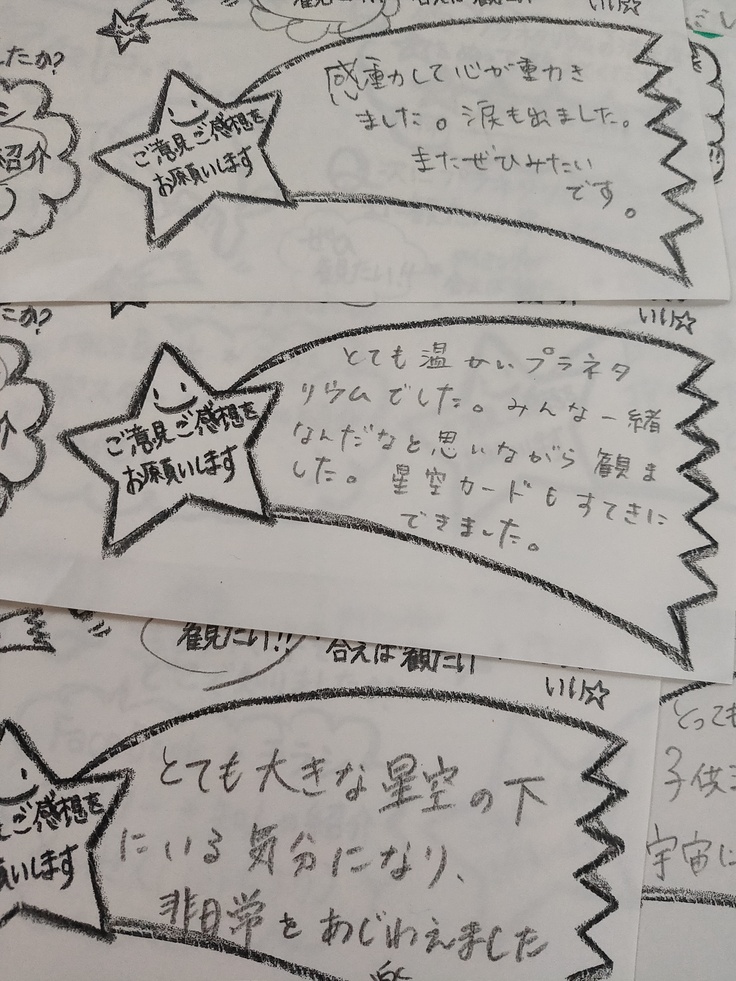 観たい!!
合えば観たい
いい☆
したか?
紹介
ご意見ご感想を
お願いします
感動して心が動き
ました。涙も出ました。
またぜひみたい
です。
たか?
いい☆
ご意見ご感想を
お願いします
とても温かいプラネタ
リウムでした。みんな一緒
なんだなと思いながら観ま
した。星空カードもすてきに
できました。
観たい!!
合えば観たい
いい☆
ご感想を
願いします
とても大きな星空の下
にいる気分になり、
非日常をあじわえました
とっても
子供
宇宙に